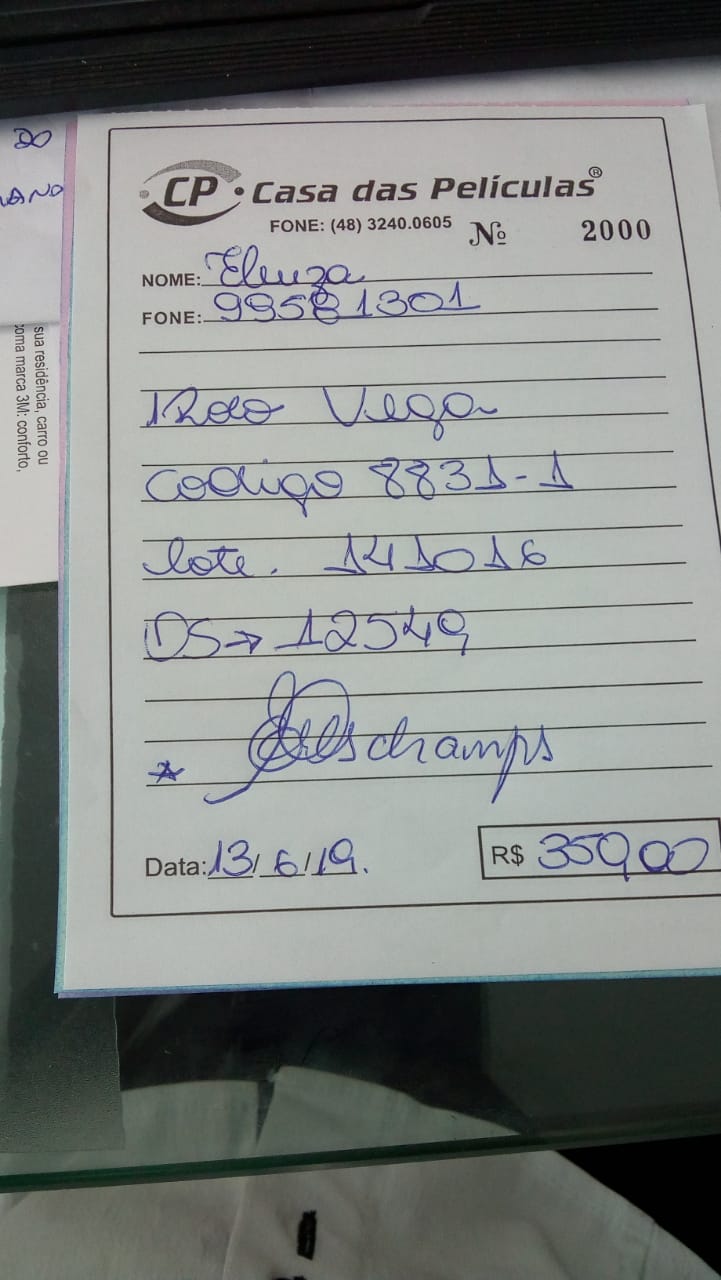 DO
LANO
sua residência, carro ou
oma marca 3M: conforto,
CP Casa das Películas®
FONE: (48) 3240.0605 Nº 2000
NOME: Eleuza
FONE: 99581301
Rolo Vega
codigo 8831-1
lote. 141016
OS→ 12549
* Deschamps
Data: 13/6/19.
R$ 359,00